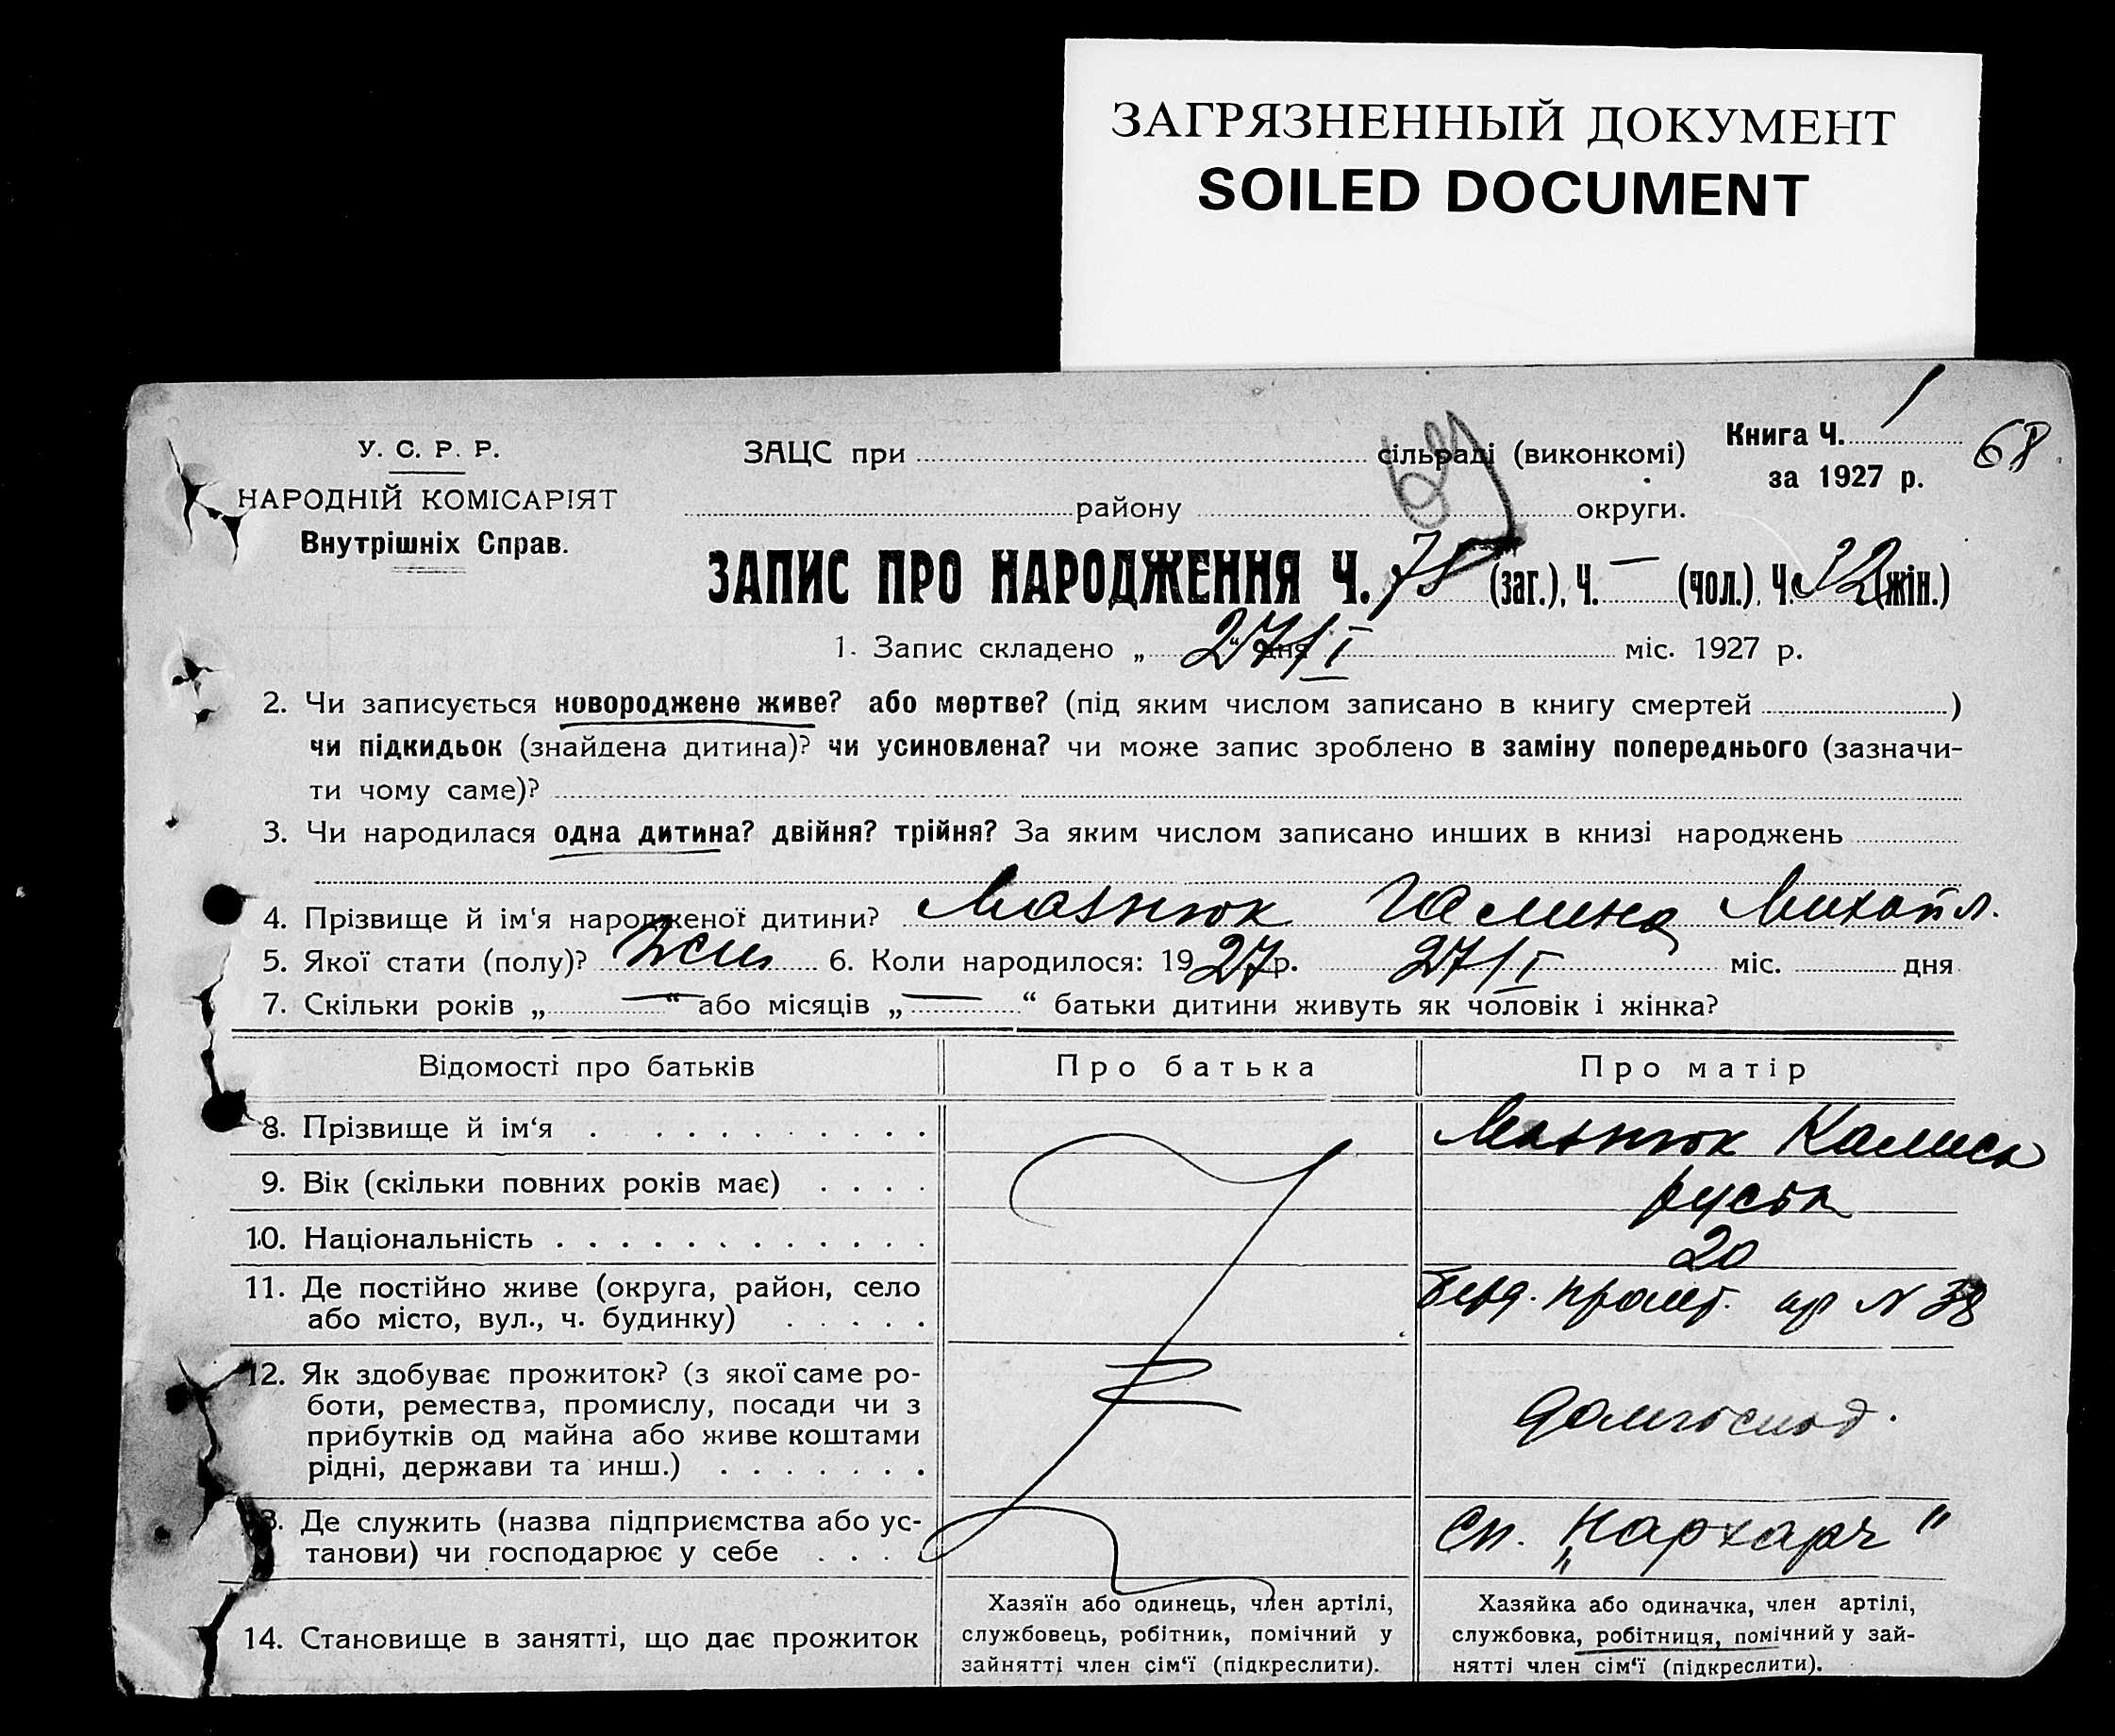 ЗАГРЯЗНЕННЫЙ ДОКУМЕНТ
SOILED DOCUMENT
У. С. Р. Р.
НАРОДНІЙ КОМІСАРІЯТ
Внутрішніх Справ.
ЗАЦС при сільраді (виконкомі)
району округи.
Книга Ч. 1
за 1927 р.
68
ЗАПИС ПРО НАРОДЖЕННЯ Ч. 78 (заг.), Ч. — (чол.), Ч. 32 (жін.)
1. Запис складено „ 27/I “ дня міс. 1927 р.
2. Чи записується новороджене живе? або мертве? (під яким числом записано в книгу смертей )
чи підкидьок (знайдена дитина)? чи усиновлена? чи може запис зроблено в заміну попереднього (зазначи-
ти чому саме)?
3. Чи народилася одна дитина? двійня? трійня? За яким числом записано инших в книзі народжень
4. Прізвище й ім‘я народженої дитини? Галина Михайл.
5. Якої стати (полу)? 6. Коли народилося: 1927 р. 27/I міс. дня
7. Скільки років „ — “ або місяців „ — “ батьки дитини живуть як чоловік і жінка?
Відомості про батьків Про батька Про матір
8. Прізвище й ім‘я
9. Вік (скільки повних років має)
10. Національність 20
11. Де постійно живе (округа, район, село
або місто, вул., ч. будинку) N 38
12. Як здобуває прожиток? (з якої саме ро-
боти, ремества, промислу, посади чи з
прибутків од майна або живе коштами
рідні, держави та инш.) домгоспод.
13. Де служить (назва підприємства або ус-
танови) чи господарює у себе сп. „Нархарч“
14. Становище в занятті, що дає прожиток
Хазяїн або одинець, член артілі,
службовець, робітник, помічний у
зайнятті член сім‘ї (підкреслити).
Хазяйка або одиначка, член артілі,
службовка, робітниця, помічний у зай-
нятті член сім‘ї (підкреслити).